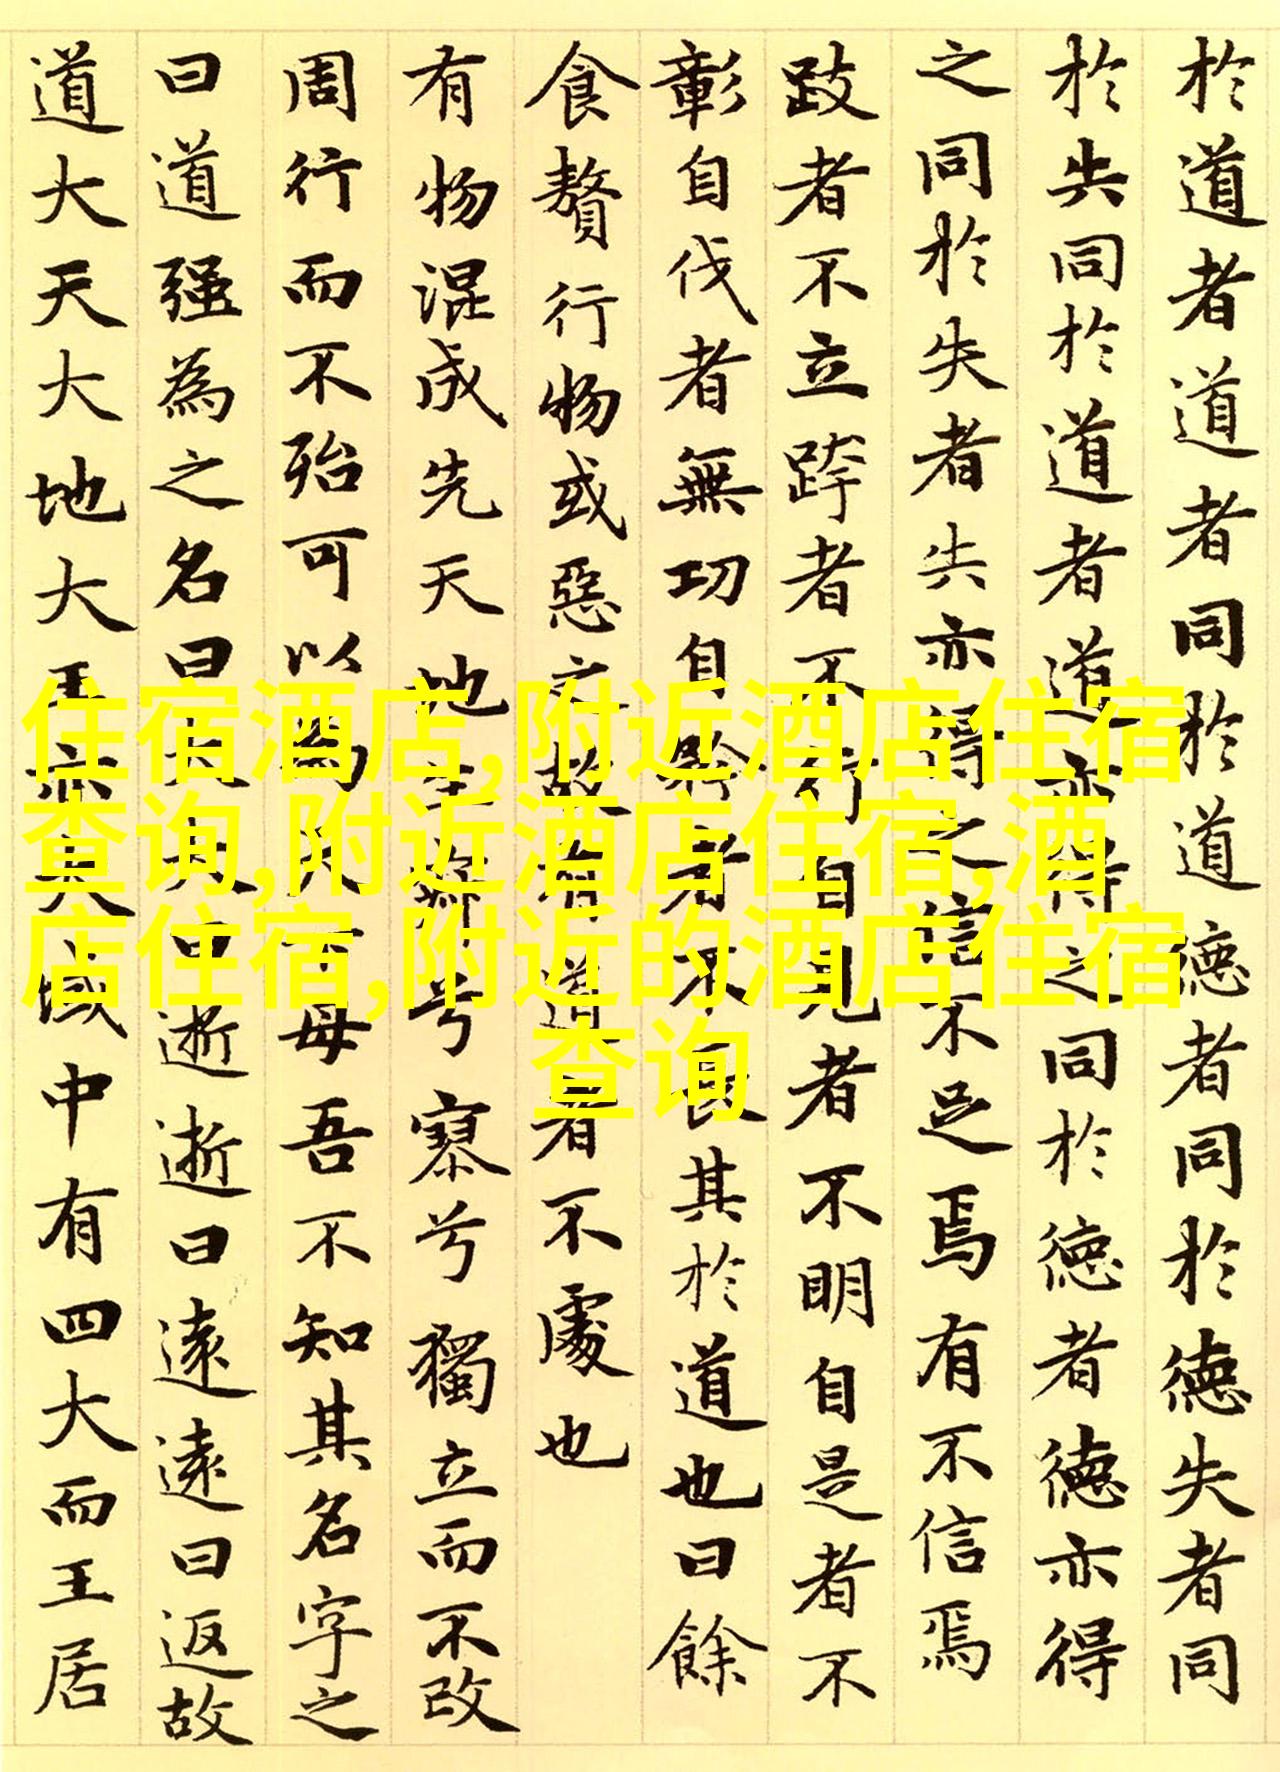 於道者道者同於道德者同於德失者同
於失同於道者道亦得之同於德者德亦得
之同於失者失亦得之信不足焉有不信焉
跂者不立跨者不行自見者不明自是者不
彰自伐者無功自矜者不長其於道也曰餘
食贅行物或惡之故有道者不處也
有物混成先天地生寂兮寥兮獨立而不改
周行而不殆可以為天下母吾不知其名字之
曰道强為之名曰大大曰逝逝曰遠遠曰返故
道大天大地大王亦大域中有四大而王居
住宿酒店,附近酒店住宿
查询,附近酒店住宿,酒
店住宿,附近的酒店住宿
查询